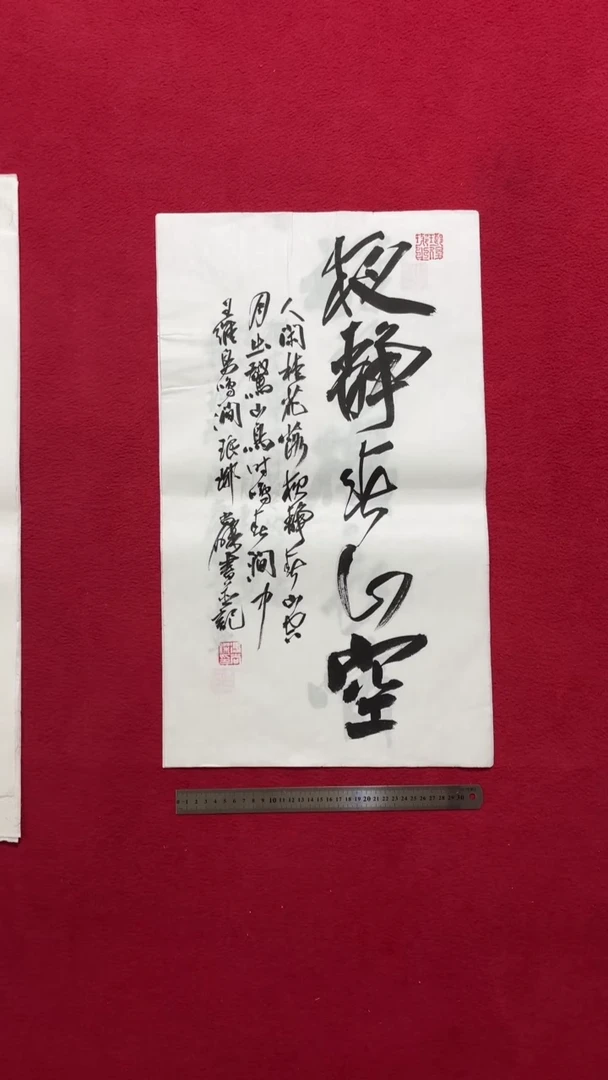 夜静春山空
人闲桂花落夜静春山空
月出驚山鳥时鸣春澗中
王維鳥鸣澗 琅琊 書并記
0 1 2 3 4 5 6 7 8 9 10 11 12 13 14 15 16 17 18 19 20 21 22 23 24 25 26 27 28 29 30